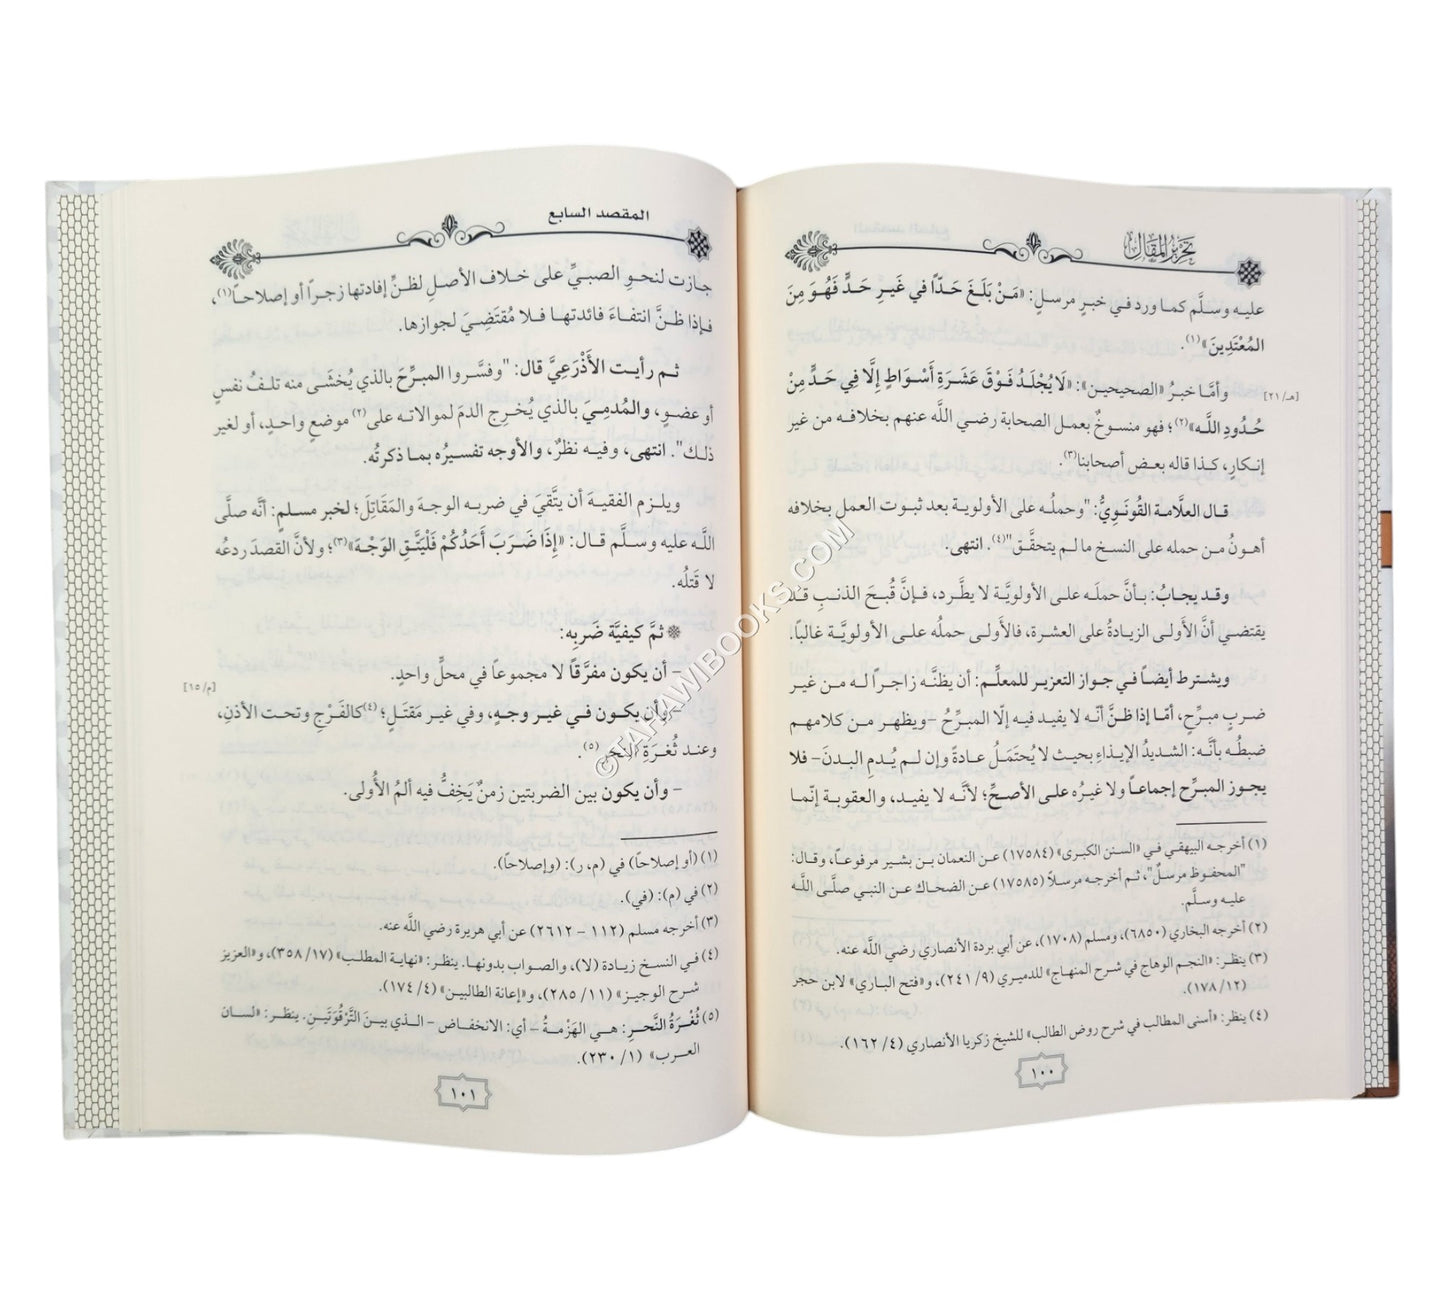 تحرير المقال
عليه وسلَّم كما ورد في خبرٍ مرسلٍ: «مَنْ بَلَغَ حَدّاً في غَيرِ حَدٍّ فَهُوَ مِنَ
المُعْتَدِينَ»(١).
وأمَّا خبرُ «الصحيحين»: «لَا يُجْلَدُ فَوْقَ عَشَرَةِ أَسْوَاطٍ إِلَّا فِي حَدٍّ مِنْ
[هـ/ ٢١]
حُدُودِ اللَّه»(٢)؛ فهو منسوخٌ بعمل الصحابة رضي اللَّه عنهم بخلافه من غير
إنكارٍ، كذا قاله بعض أصحابنا(٣).
قال العلَّامة القُونَوِيُّ: "وحملُه على الأولوية بعد ثبوت العمل بخلافه
أهونُ من حمله على النسخ ما لم يتحقَّق"(٤). انتهى.
وقد يجابُ: بأنَّ حملَه على الأولويَّة لا يطَّرد، فإنَّ قُبحَ الذنبِ قد
يقتضي أنَّ الأَولى الزيادةُ على العشرة، فالأَولى حملُه على الأولويَّة غالباً.
ويشترط أيضاً في جواز التعزير للمعلِّم: أن يظنَّه زاجراً له من غير
ضربٍ مبرِّحٍ، أمّا إذا ظنَّ أنّه لا يفيد فيه إلّا المبرِّحُ –ويظهر من كلامهم
ضبطُه بأنَّه: الشديدُ الإيذاءِ بحيث لا يُحتَمَلُ عادةً وإن لم يُدمِ البدنَ– فلا
يجوز المبرِّح إجماعاً ولا غيرُه على الأصحِّ؛ لأنَّه لا يفيد، والعقوبة إنّما
(١) أخرجه البيهقي في «السنن الكبرى» (١٧٥٨٤) عن النعمان بن بشير مرفوعاً، وقال:
"المحفوظ مرسلٌ"، ثم أخرجه مرسلاً (١٧٥٨٥) عن الضحاك عن النبي صلَّى اللَّه
عليه وسلَّم.
(٢) أخرجه البخاري (٦٨٥٠)، ومسلم (١٧٠٨)، عن أبي بردة الأنصاري رضي اللَّه عنه.
(٣) ينظر: «النجم الوهاج في شرح المنهاج» للدميري (٩/ ٢٤١)، و«فتح الباري» لابن حجر
(١٢/ ١٧٨).
(٤) ينظر: «أسنى المطالب في شرح روض الطالب» للشيخ زكريا الأنصاري (٤/ ١٦٢).
١٠٠
المقصد السابع
جازت لنحوِ الصبيِّ على خلاف الأصلِ لظنِّ إفادتها زجراً أو إصلاحاً(١)،
فإذا ظنَّ انتفاءَ فائدتها فلا مُقتَضِيَ لجوازها.
ثم رأيت الأَذْرَعِيَّ قال: "وفسَّروا المبرِّحَ بالذي يُخشَى منه تلفُ نفسٍ
أو عضوٍ، والمُدمِيَ بالذي يُخرِج الدمَ لموالاته على(٢) موضعٍ واحدٍ، أو لغير
ذلك". انتهى، وفيه نظرٌ، والأوجه تفسيرُه بما ذكرتُه.
ويلزم الفقيهَ أن يتَّقيَ في ضربه الوجهَ والمَقَاتِلَ؛ لخبر مسلمٍ: أنَّه صلَّى
اللَّه عليه وسلَّم قال: «إِذَا ضَرَبَ أَحَدُكُمْ فَلْيَتَّقِ الوَجْهَ»(٣)؛ ولأنَّ القصدَ ردعُه
لا قَتلُه.
❋ ثمَّ كيفيَّة ضَربِه:
– أن يكون مفرَّقاً لا مجموعاً في محلٍّ واحدٍ.
– وأن يكون في غير وجهٍ، وفي غير مَقتَلٍ؛ (٤)كالفَرْجِ وتحت الأذنِ،
[م/ ١٥]
وعند ثُغرَةِ النحرِ(٥).
– وأن يكون بين الضربتين زمنٌ يَخِفُّ فيه ألمُ الأُولى.
(١) (أو إصلاحاً) في (م، ر): (وإصلاحاً).
(٢) في (م): (في).
(٣) أخرجه مسلم (١١٢ – ٢٦١٢) عن أبي هريرة رضي اللَّه عنه.
(٤) في النسخ زيادة (لا)، والصواب بدونها. ينظر: «نهاية المطلب» (١٧/ ٣٥٨)، و«العزيز
شرح الوجيز» (١١/ ٢٨٥)، و«إعانة الطالبين» (٤/ ١٧٤).
(٥) ثُغْرَةُ النَّحرِ: هي الهَزْمةُ – أي: الانخفاض – الذي بينَ التَّرْقُوَتَينِ. ينظر: «لسان
العرب» (١/ ٢٣٠).
١٠١
©TAHAWIBOOKS.COM